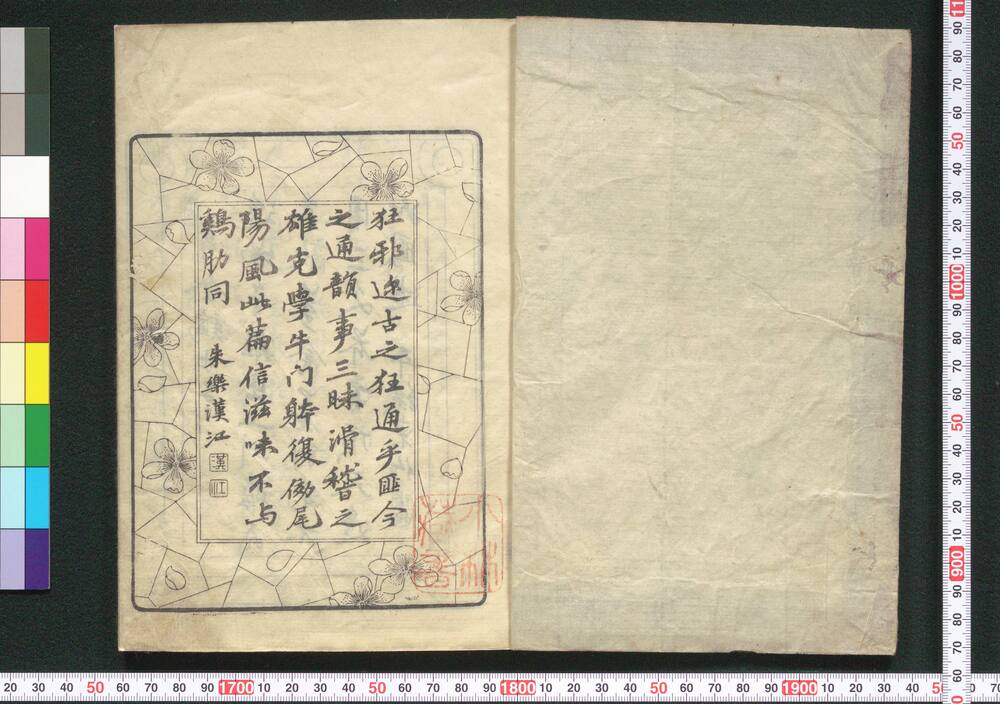 狂邪近古之狂通乎匪今
之通韻事三昧滑稽之
雄克學牛門躰復倣尾
陽風此篇信滋味不与
鷄肋同
朱樂漢江
漢
江